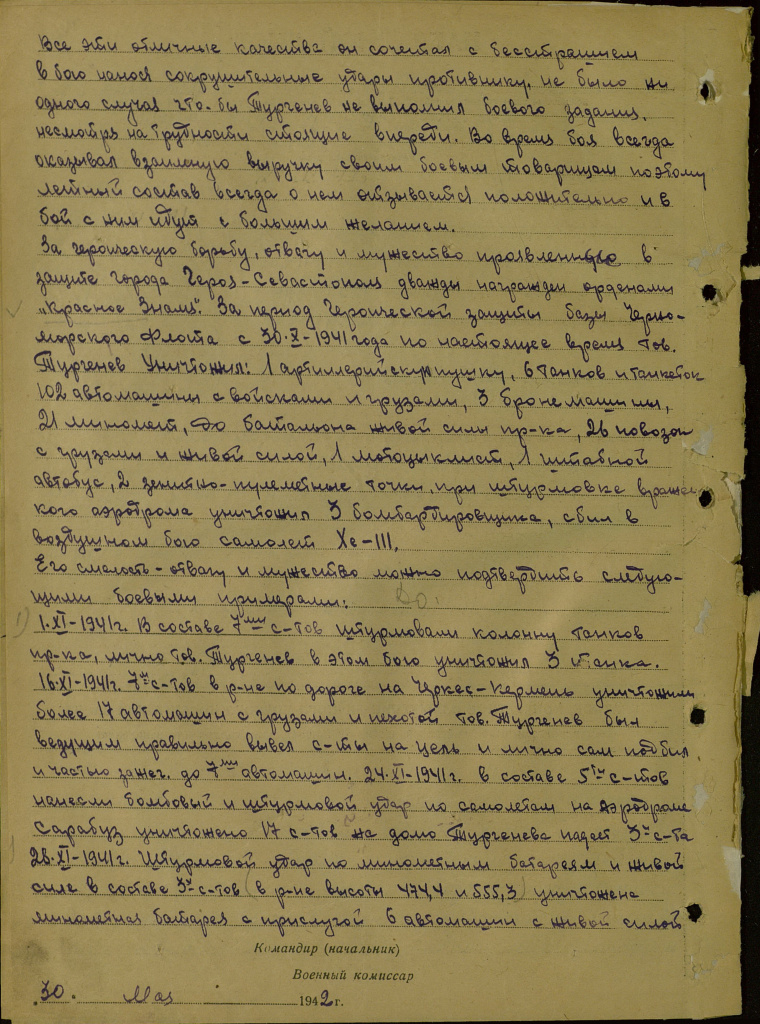 Все эти отличные качества он сочетал с бесстрашием
в бою нанося сокрушительные удары противнику, не было ни
одного случая что-бы Тургенев не выполнил боевого задания.
несмотря на трудности стоящие впереди. Во время боя всегда
оказывал взаимную выручку своим боевым товарищам поэтому
летный состав всегда о нем отзывается положительно и в
бой с ним идут с большим желанием.
За героическую борьбу, отвагу и мужество проявленную в
защите города Героя-Севастополя дважды награжден орденами
„Красное Знамя". За период Героической защиты базы Черно-
морского Флота с 30.X-1941 года по настоящее время тов.
Тургенев Уничтожил: 1 артиллерийскую пушку, 6 танков и танкеток
102 автомашины с войсками и грузами, 3 бронемашины,
21 миномет, до батальона живой силы пр-ка, 26 повозок
с грузами и живой силой, 1 мотоциклист, 1 штабной
автобус, 2 зенитно-пулеметные точки, при штурмовке вражес
кого аэродрома уничтожил 3 бомбардировщика, сбил в
воздушном бою самолет Хе-111.
Его смелость-отвагу и мужество можно подтвердить следую-
щими боевыми примерами:
1.XI-1941г. В составе 7ми с-тов штурмовали колонну танков
пр-ка, лично тов. Тургенев в этом бою уничтожил 3 танка.
16.XI-1941г. 7ь с-тов в р-не по дороге на Черкес-Кермень уничтожили
более 17 автомашин с грузами и пехотой тов. Тургенев был
ведущим правильно вывел с-ты на цель и лично сам подбил
и частью зажег. до 7ми автомашин. 24.XI-1941г. в составе 5ти с-тов
нанесли бомбовый и штурмовой удар по самолетам на аэродроме
Сарабуз уничтожено 17 с-тов на долю Тургенева падает 3и с-та
28.XI-1941г. Штурмовой удар по минометным батареям и живой
силе в составе 3х с-тов (в р-не высоты 474,4 и 555,3) уничтожена
минометная батарея с прислугой 6 автомашин с живой силой
Командир (начальник)
Военный комиссар
30. Мая 1942 г.